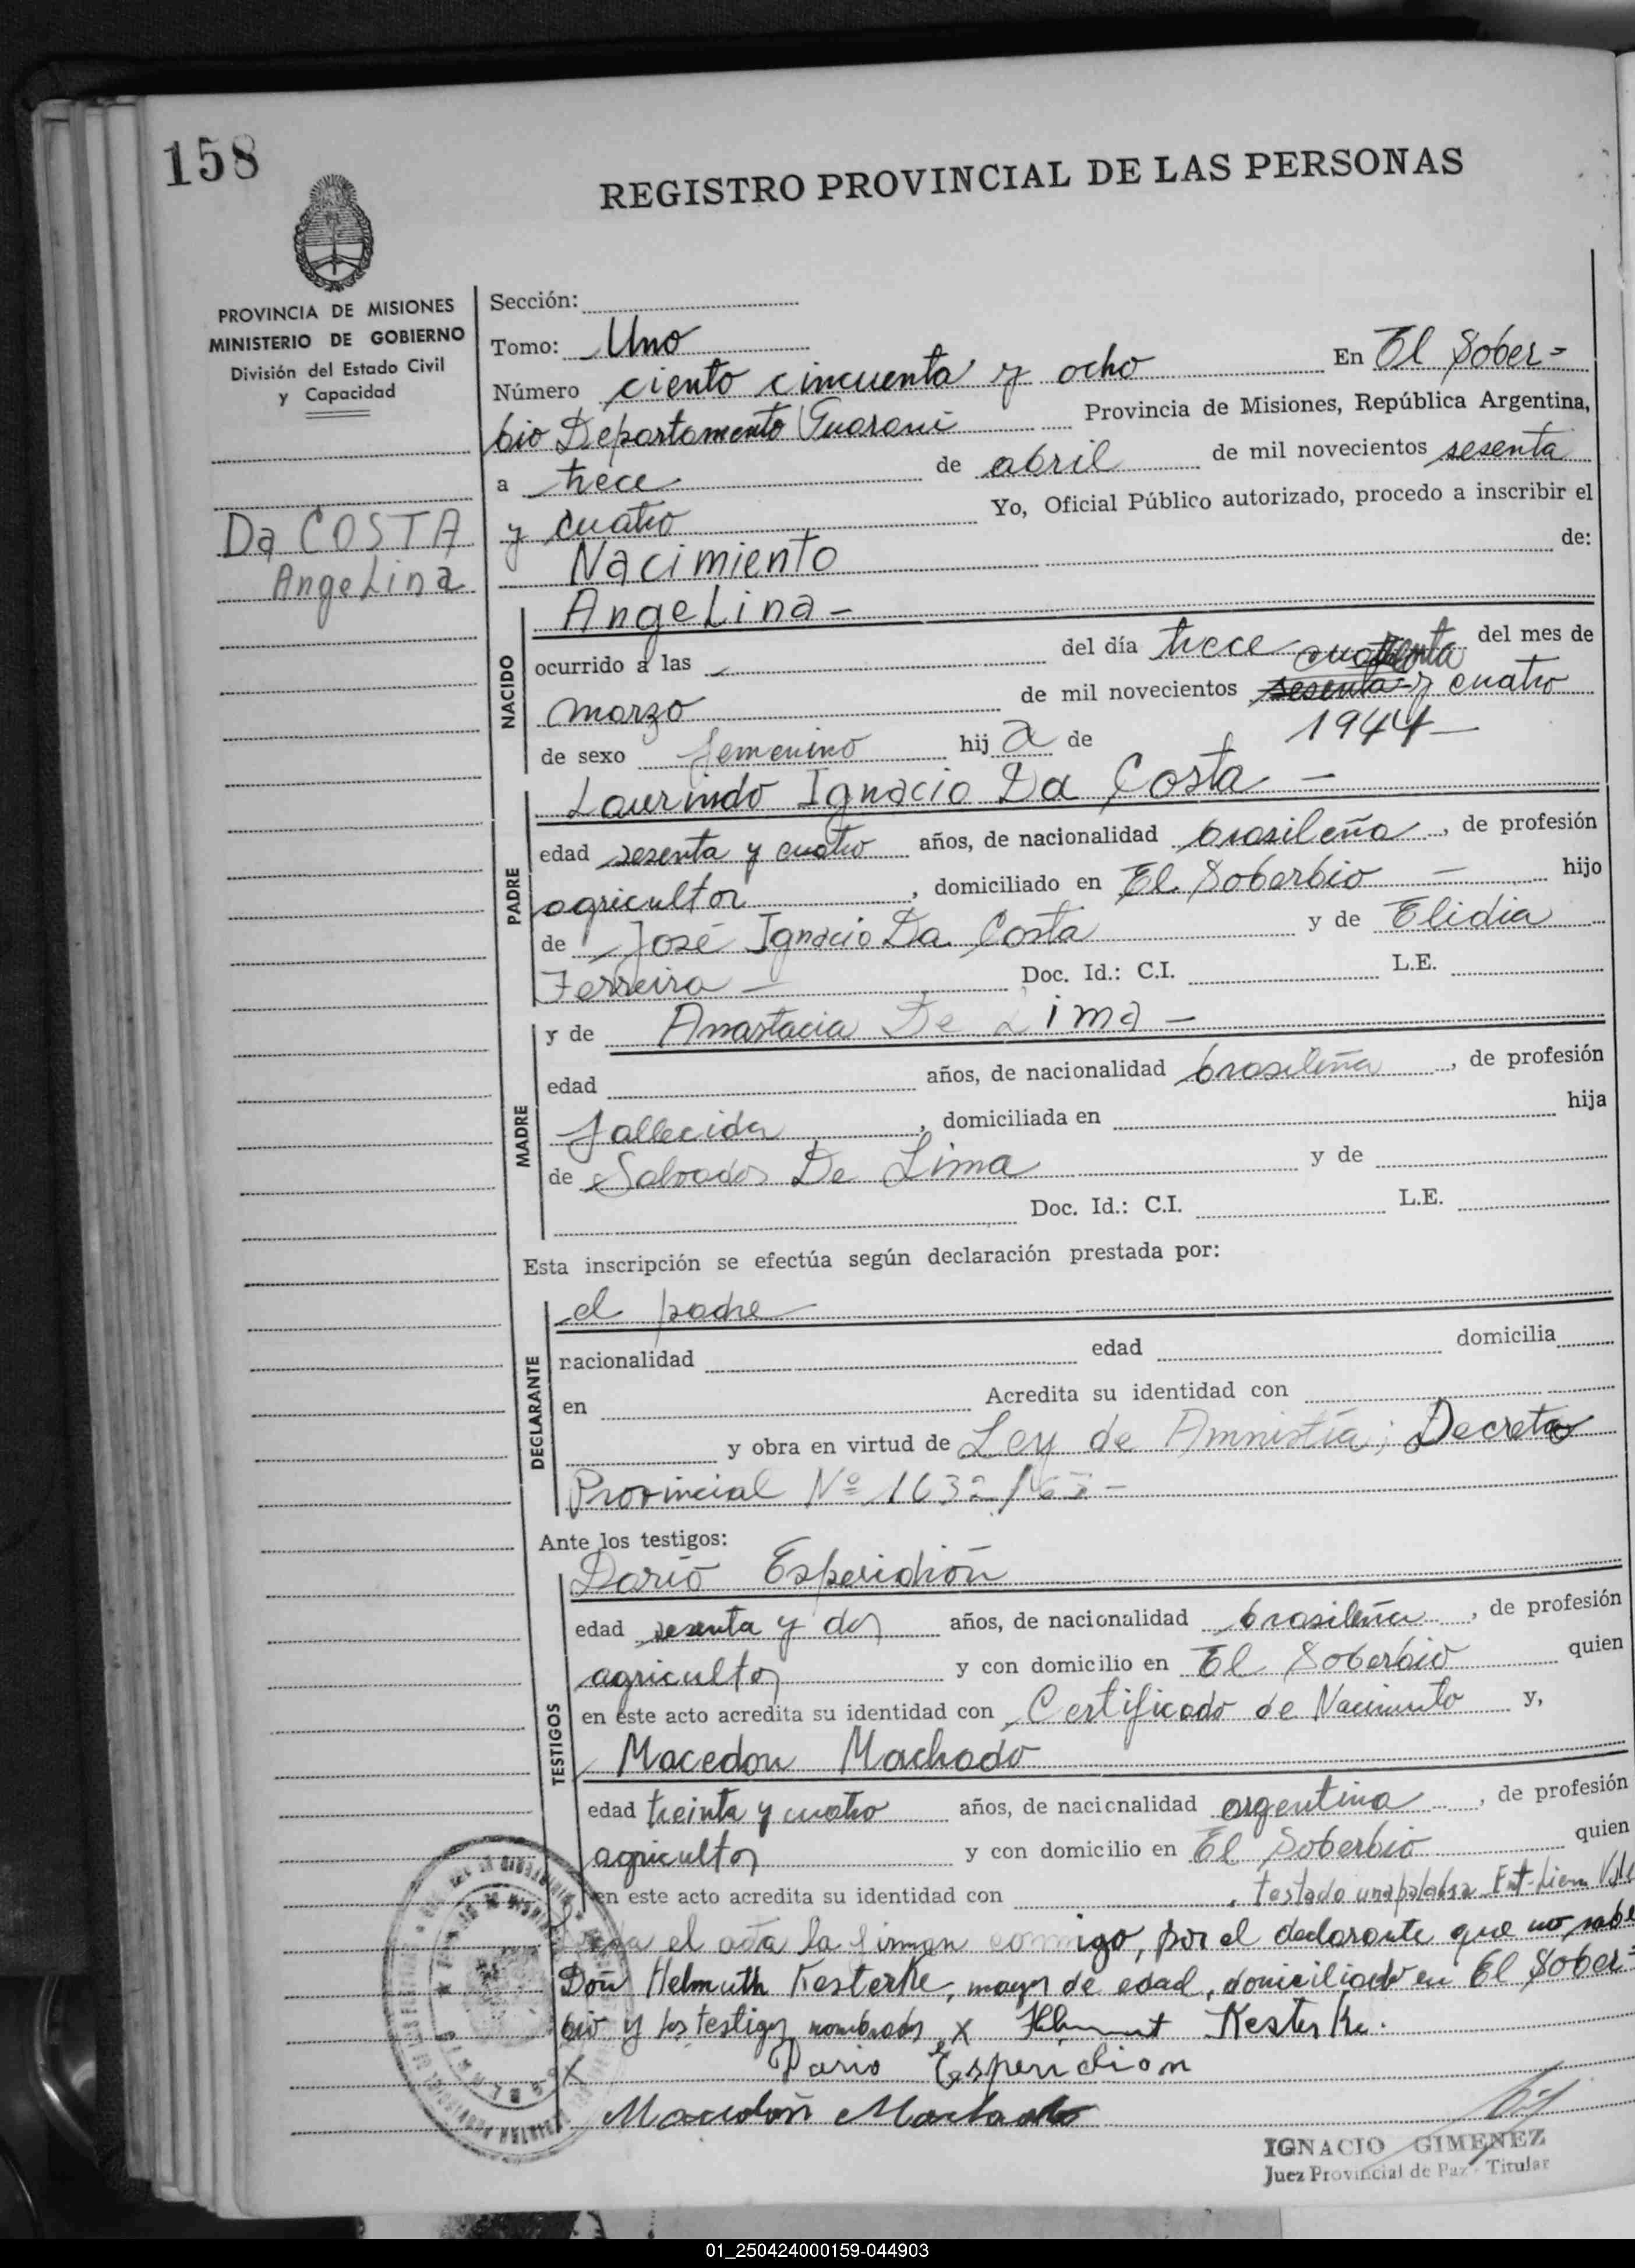 158
REGISTRO PROVINCIAL DE LAS PERSONAS
PROVINCIA DE MISIONES
MINISTERIO DE GOBIERNO
División del Estado Civil
y Capacidad
Da COSTA
Angelina
Sección:
Tomo: Uno
Número ciento cincuenta y ocho En El Sober=
bio Departamento Guarani Provincia de Misiones, República Argentina,
a trece de abril de mil novecientos sesenta
y cuatro Yo, Oficial Público autorizado, procedo a inscribir el
Nacimiento de:
NACIDO
Angelina -
ocurrido a las del día trece cuarenta del mes de
marzo de mil novecientos sesenta y cuatro
de sexo femenino hij a de 1944-
PADRE
Laurindo Ignacio Da Costa -
edad sesenta y cuatro años, de nacionalidad brasileña, de profesión
agricultor, domiciliado en El Soberbio - hijo
de José Ignacio Da Costa y de Elidia
Ferreira - Doc. Id.: C.I. L.E.
MADRE
y de Anastacia De Lima -
edad años, de nacionalidad brasileña, de profesión
fallecida, domiciliada en hija
de Salvador De Lima y de
Doc. Id.: C.I. L.E.
Esta inscripción se efectúa según declaración prestada por:
DECLARANTE
el padre
nacionalidad edad domicilia
en Acredita su identidad con
y obra en virtud de Ley de Amnistía; Decreto
Provincial Nº 1632/63-
Ante los testigos:
TESTIGOS
Darío Esperidión
edad sesenta y dos años, de nacionalidad brasileña, de profesión
agricultor y con domicilio en El Soberbio quien
en este acto acredita su identidad con Certificado de Nacimiento y,
Macedon Machado
edad treinta y cuatro años, de nacionalidad argentina, de profesión
agricultor y con domicilio en El Soberbio quien
en este acto acredita su identidad con , testado una palabra Ent-Lien Vale
el acta la firman conmigo, por el declarante que no sabe
Don Helmuth Kesterke, mayor de edad, domiciliado en El Sober=
bio y los testigos nombrados x Helmut Kesterke.
x Dario Esperidion
Macedon Machado
IGNACIO GIMENEZ
Juez Provincial de Paz - Titular
01_250424000159-044903